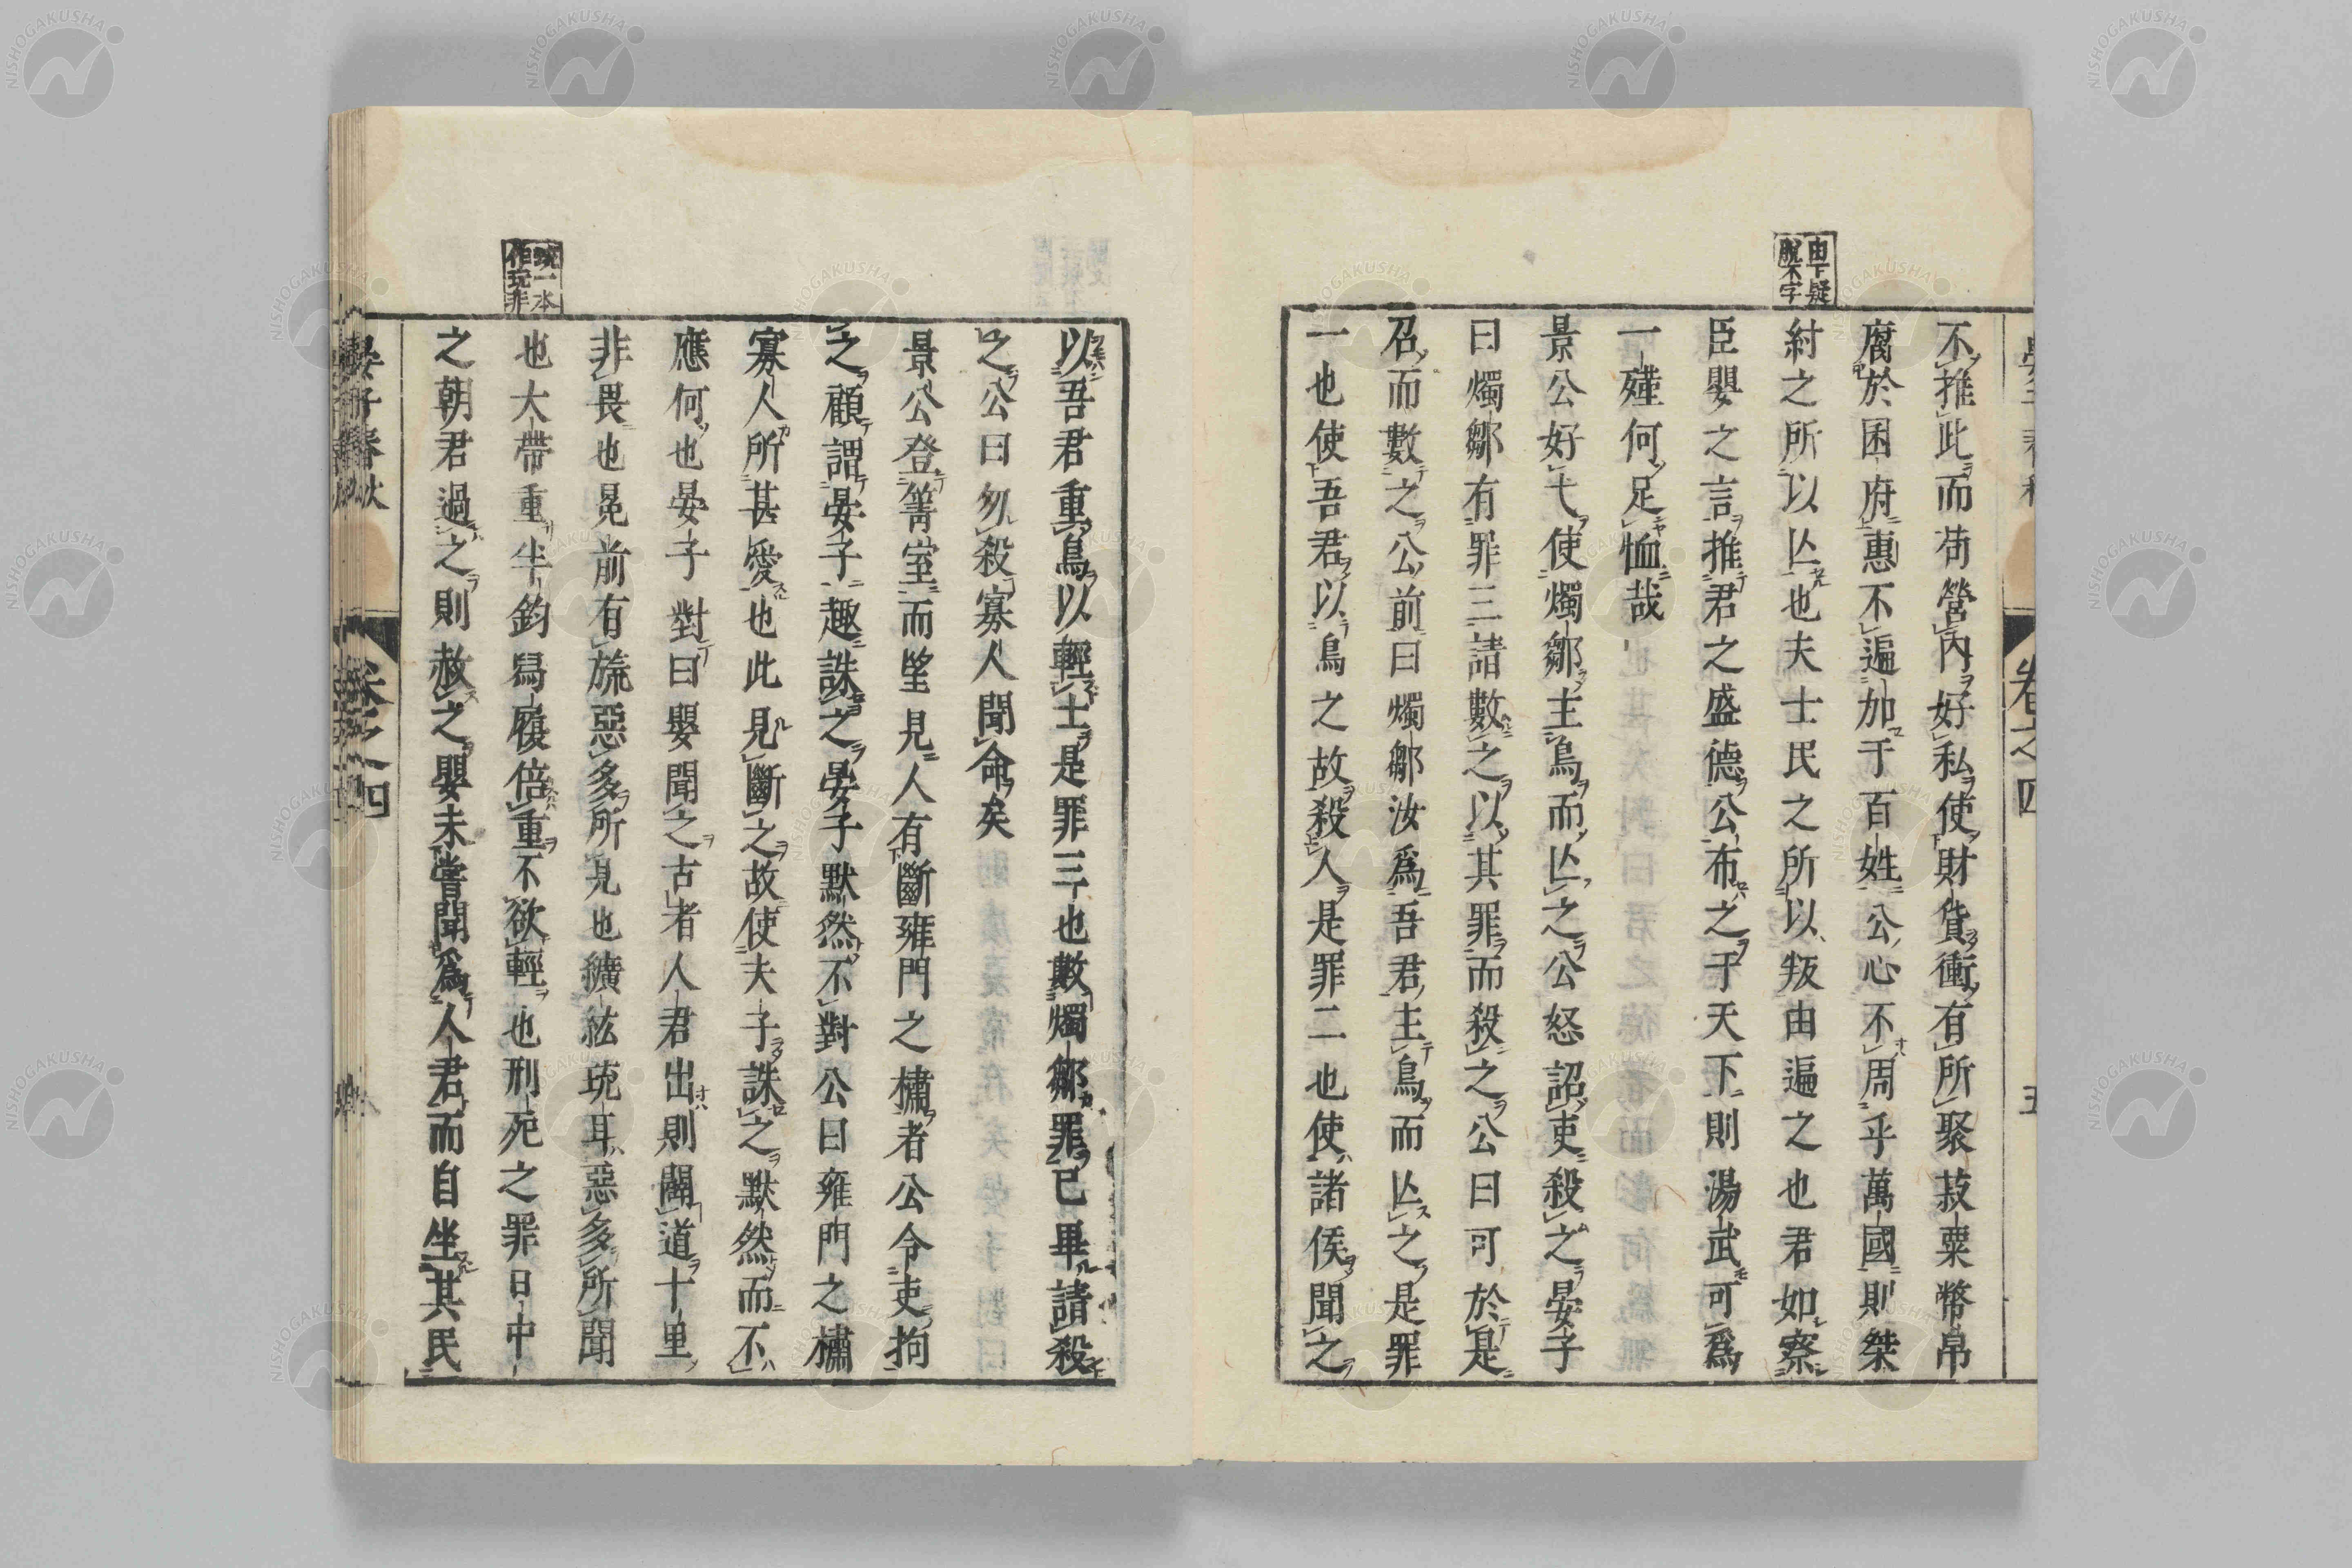 由下疑
脫不字
不推此而苟營內好私使財貨衝有所聚菽粟幣帛
腐於困府惠不遍加于百姓公心不周乎萬國則桀
紂之所以亾也夫士民之所以叛由遍之也君如察
臣嬰之言推君之盛德公布之于天下則湯武可爲
一殣何足恤哉
景公好弋使燭鄒主鳥而亾之公怒詔吏殺之晏子
曰燭鄒有罪三請數之以其罪而殺之公曰可於是
召而數之公前曰燭鄒汝爲吾君主鳥而亾之是罪
一也使吾君以鳥之故殺人是罪二也使諸侯聞之
以吾君重鳥以輕士是罪三也數燭鄒罪已畢請殺
之公曰勿殺寡人聞命矣
景公登箐室而望見人有斷雍門之橚者公令吏拘
之顧謂晏子趣誅之晏子默然不對公曰雍門之橚
寡人所甚愛也此見斷之故使夫子誅之默然而不
應何也晏子對曰嬰聞之古者人君出則闢道十里
非畏也冕前有旒惡多所見也纊紘琉耳惡多所聞
琉一本
作玩非
也大帶重半鈞舄履倍重不欲輕也刑死之罪日中
之朝君過之則赦之嬰未嘗聞爲人君而自坐其民
晏子春秋
卷之四